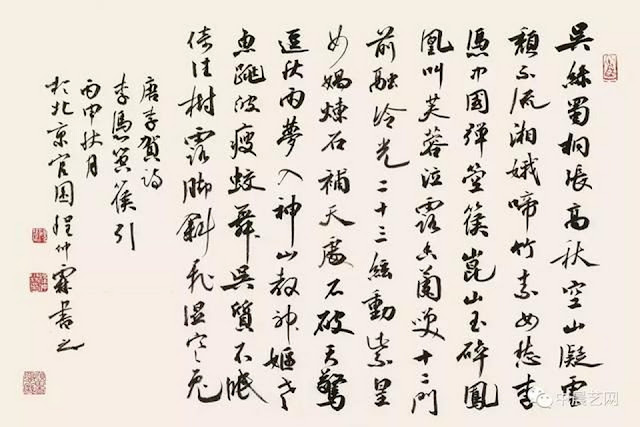 吳絲蜀桐張高秋空山凝雲
頹不流湘娥啼竹素女愁李
馮中國彈箜篌崑山玉碎鳳
凰叫芙蓉泣露香蘭笑十二門
前融冷光二十三絲動紫皇
女媧煉石補天處石破天驚
逗秋雨夢入神山教神嫗老
魚跳波瘦蛟舞吳質不眠
倚桂樹露脚斜飛濕寒兔
唐李賀詩
李馮箜篌引
丙申秋月
於北京官園程仲霖書之
中晨艺网